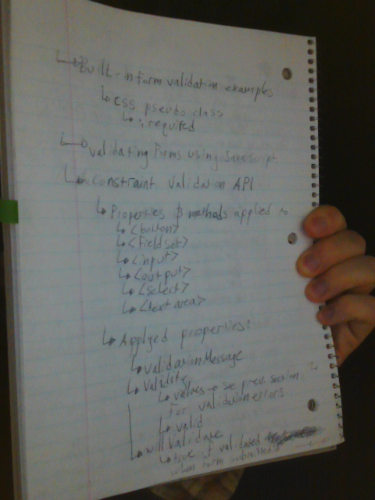 ↳ Built-in form validation examples
↳ CSS pseudo class
↳ :required
↳ Validating Forms using JavaScript
↳ Constraint Validation API
↳ Properties & methods applied to
↳ <button>
↳ <fieldset>
↳ <input>
↳ <output>
↳ <select>
↳ <textarea>
↳ Applyed properties:
↳ ValidationMessage
↳ Validity
↳ values → see prev session
for validation errors
↳ valid
↳ will validate
↳ true if validated
when form submitted